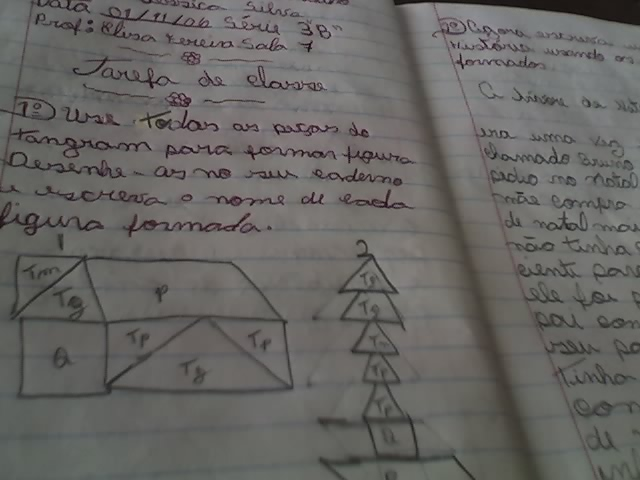 Silva
Data 01/11/06 Série 3ªB"
Prof: Elisa Pereira Sala 7
Tarefa de classe
1º) Use todas as peças do
tangram para formar figura
Desenhe-as no seu caderno
e escreva o nome de cada
figura formada.
1
Tm
Tg
P
Q
Tp
Tg
Tp
2
Tg
Tg
Tm
Tp
Tp
Q
P
2º) Agora escreva
história usando as
formadas.
A árvore de
era uma vez
chamado
pediu no natal
mãe compra
de natal mas
não tinha
ciente para
ele foi
pai com
seu pa
tinha
com
de